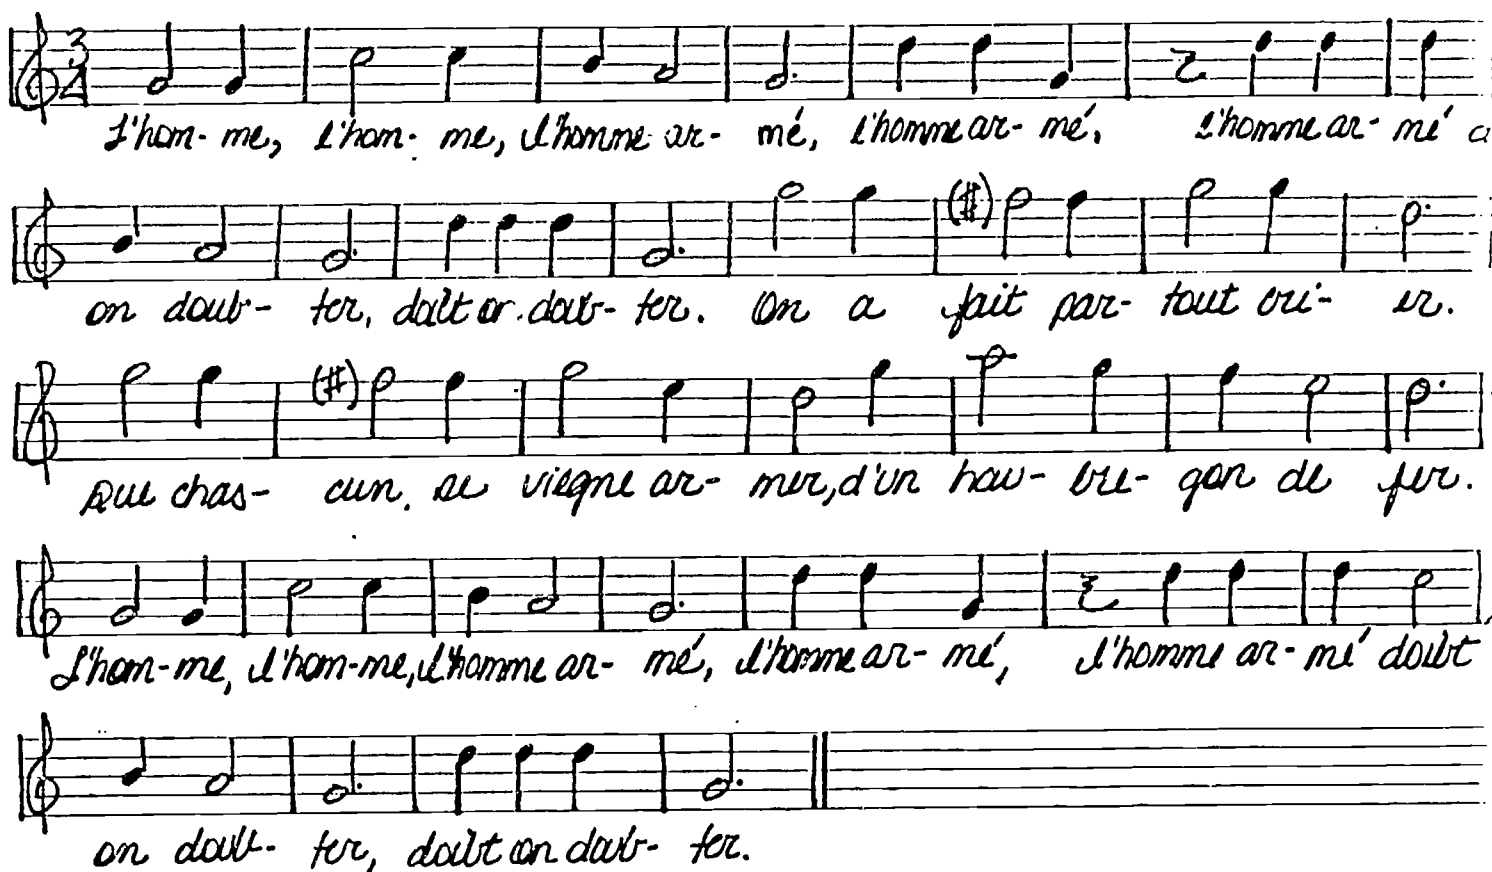 3 4
L'hom- me, l'hom- me, l'homme ar- mé, l'homme ar- mé, l'homme ar- mé
on doub- ter, doibt on doub- ter. On a fait par- tout cri- er.
Que chas- cun se viegne ar- mer, d'un hau- bre- gon de fer.
L'hom-me, l'hom-me, l'homme ar- mé, l'homme ar- mé, l'homme ar- mé doibt
on doub- ter, doibt on doub- ter.